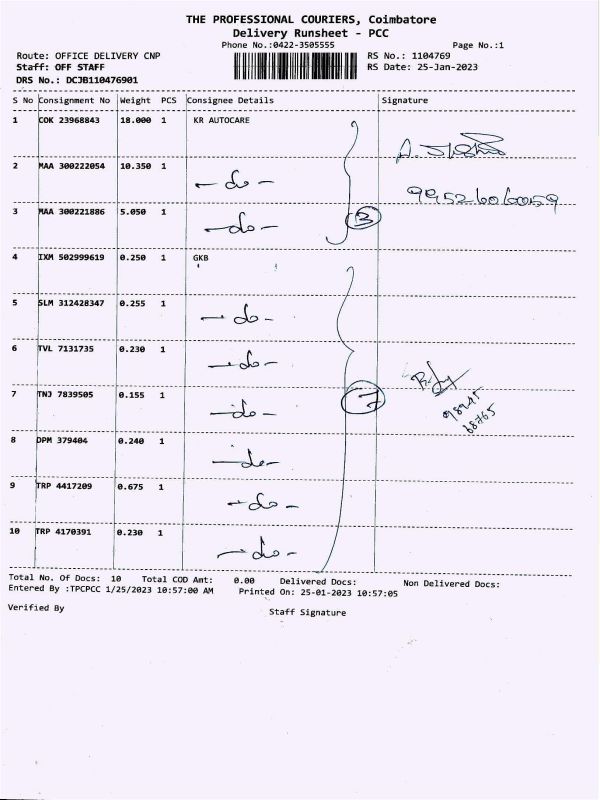 THE PROFESSIONAL COURIERS, Coimbatore
Delivery Runsheet - PCC
Phone No.:0422-3505555 Page No.:1
Route: OFFICE DELIVERY CNP RS No.: 1104769
Staff: OFF STAFF RS Date: 25-Jan-2023
DRS No.: DCJB110476901
S No Consignment No Weight PCS Consignee Details Signature
1 COK 23968843 18.000 1 KR AUTOCARE
2 MAA 300222054 10.350 1 - do -
9952606059
3 MAA 300221886 5.050 1 - do - 3
4 IXM 502999619 0.250 1 GKB
5 SLM 312428347 0.255 1 - do -
6 TVL 7131735 0.230 1 - do -
7 TNJ 7839505 0.155 1 - do - 7
98945
68765
8 DPM 379404 0.240 1 - do -
9 TRP 4417209 0.675 1 - do -
10 TRP 4170391 0.230 1 - do -
Total No. Of Docs: 10 Total COD Amt: 0.00 Delivered Docs: Non Delivered Docs:
Entered By :TPCPCC 1/25/2023 10:57:00 AM Printed On: 25-01-2023 10:57:05
Verified By Staff Signature